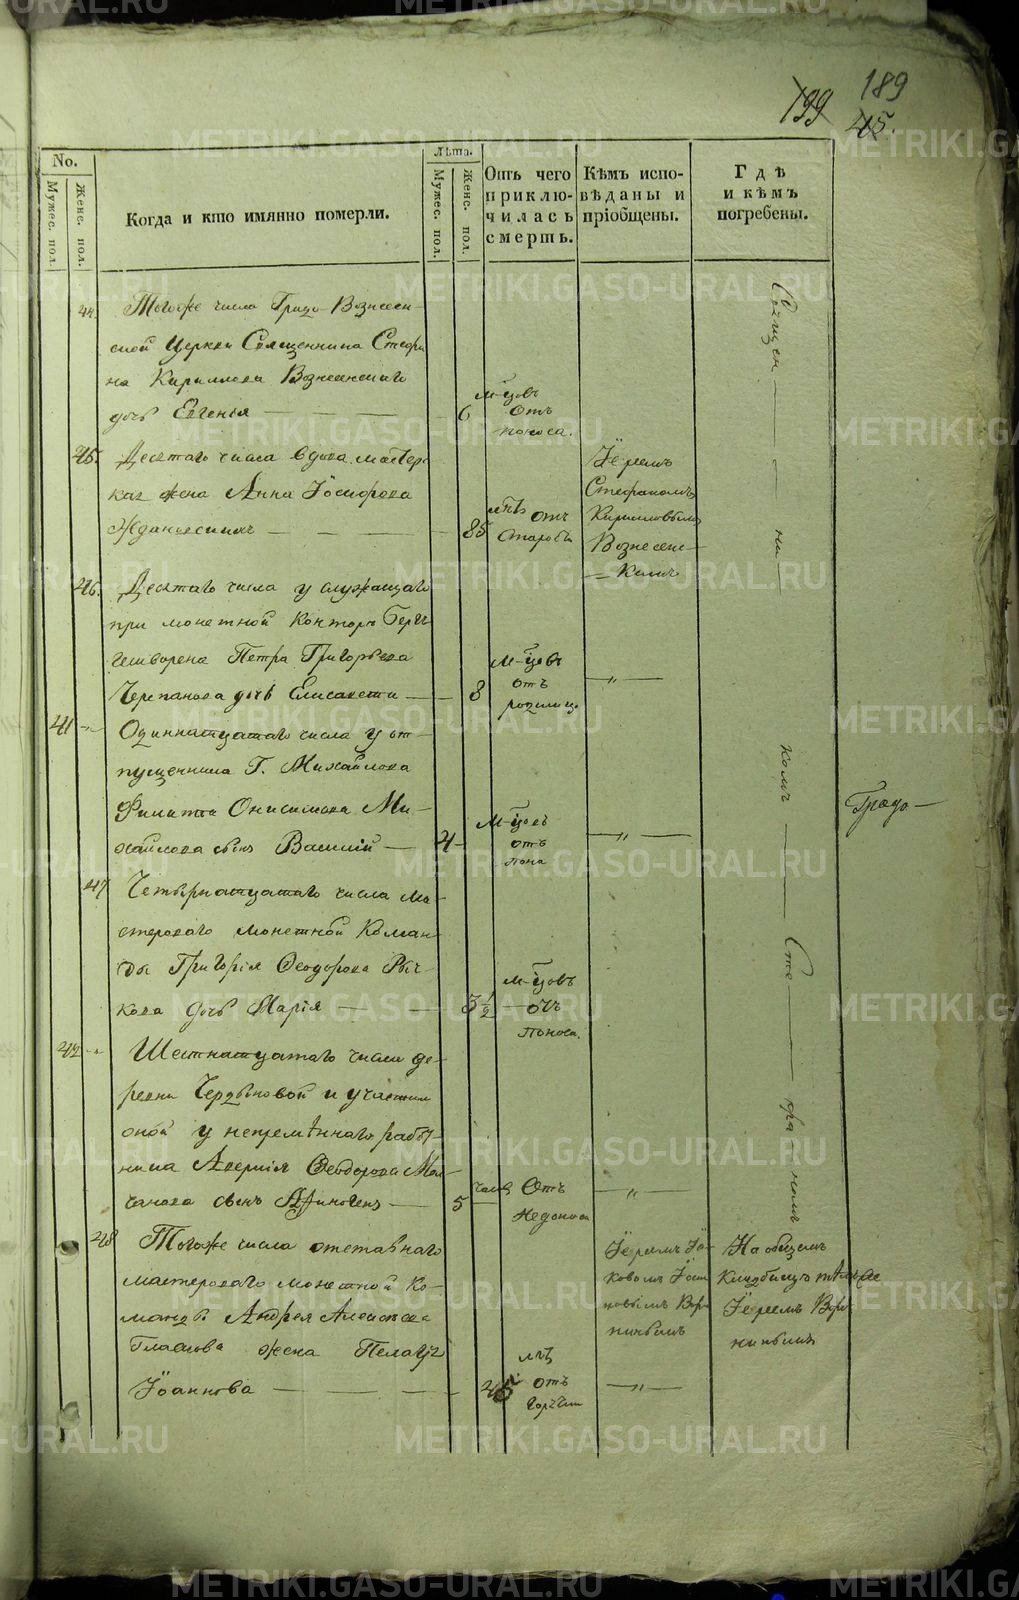 189
199
45.
No.
Мужес. пол.
Женс. пол.
Когда и кто имянно померли.
Лѣта.
Мужес. пол.
Женс. пол.
Отъ чего
приклю-
чилась
смерть.
Кѣмъ испо-
вѣданы и
прiобщены.
Гдѣ
и кѣмъ
погребены.
44.
Тогоже числа Градо Вознесен-
ской Церкви Священника Стефа
на Кирилова Вознесенскаго
дочь Евгенiя
6
м-цовъ
Отъ
поноса.
45.
Десятаго числа вдова мастер-
жена Анна Iосифова
85
лѣтъ
отъ
старости
Iереемъ
Стефаномъ
Кириловымъ
Вознесенс-
кимъ
46.
Десятаго числа у служащаго
при монетной Конторѣ Берг
гешворена Петра Григорьева
Черепанова дочь Елисавета
8
м-цовъ
отъ
родимца
41
Одиннатцатаго числа у от-
пущенника Г. Михайлова
Филиппа Онисимова Ми-
хайлова сынъ Василiй
4
м-цовъ
отъ
47
Четырнатцатаго числа ма-
стероваго монетной Коман
ды Григорiя Феодорова Рыч-
кова дочь Марiя
3 1/2
м-цовъ
отъ
поноса.
42
Шестнатцатаго числа де-
ревни
оной у непремѣннаго работ-
ника Аверкiя Феодорова Мол-
чанова сынъ
5
часов
Отъ
48
Тогоже числа отставнаго
мастероваго монетной Ко-
манды Андрея Алексѣева
жена Пелагiя
Iоаннова
45
лѣтъ
отъ
горячки
Iереемъ Iа-
ковомъ
На общемъ
кладбищѣ тѣмъже
Iереемъ
Священ
ни
комъ
Сте
фа
номъ
Градо
METRIKI.GASO-URAL.RU